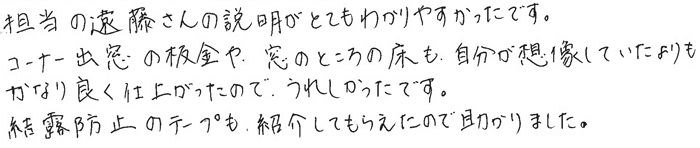 担当の遠藤さんの説明がとてもわかりやすかったです。
コーナー出窓の板金や、窓のところの床も、自分が想像していたよりも
かなり良く仕上がったので、うれしかったです。
結露防止のテープも、紹介してもらえたので助かりました。